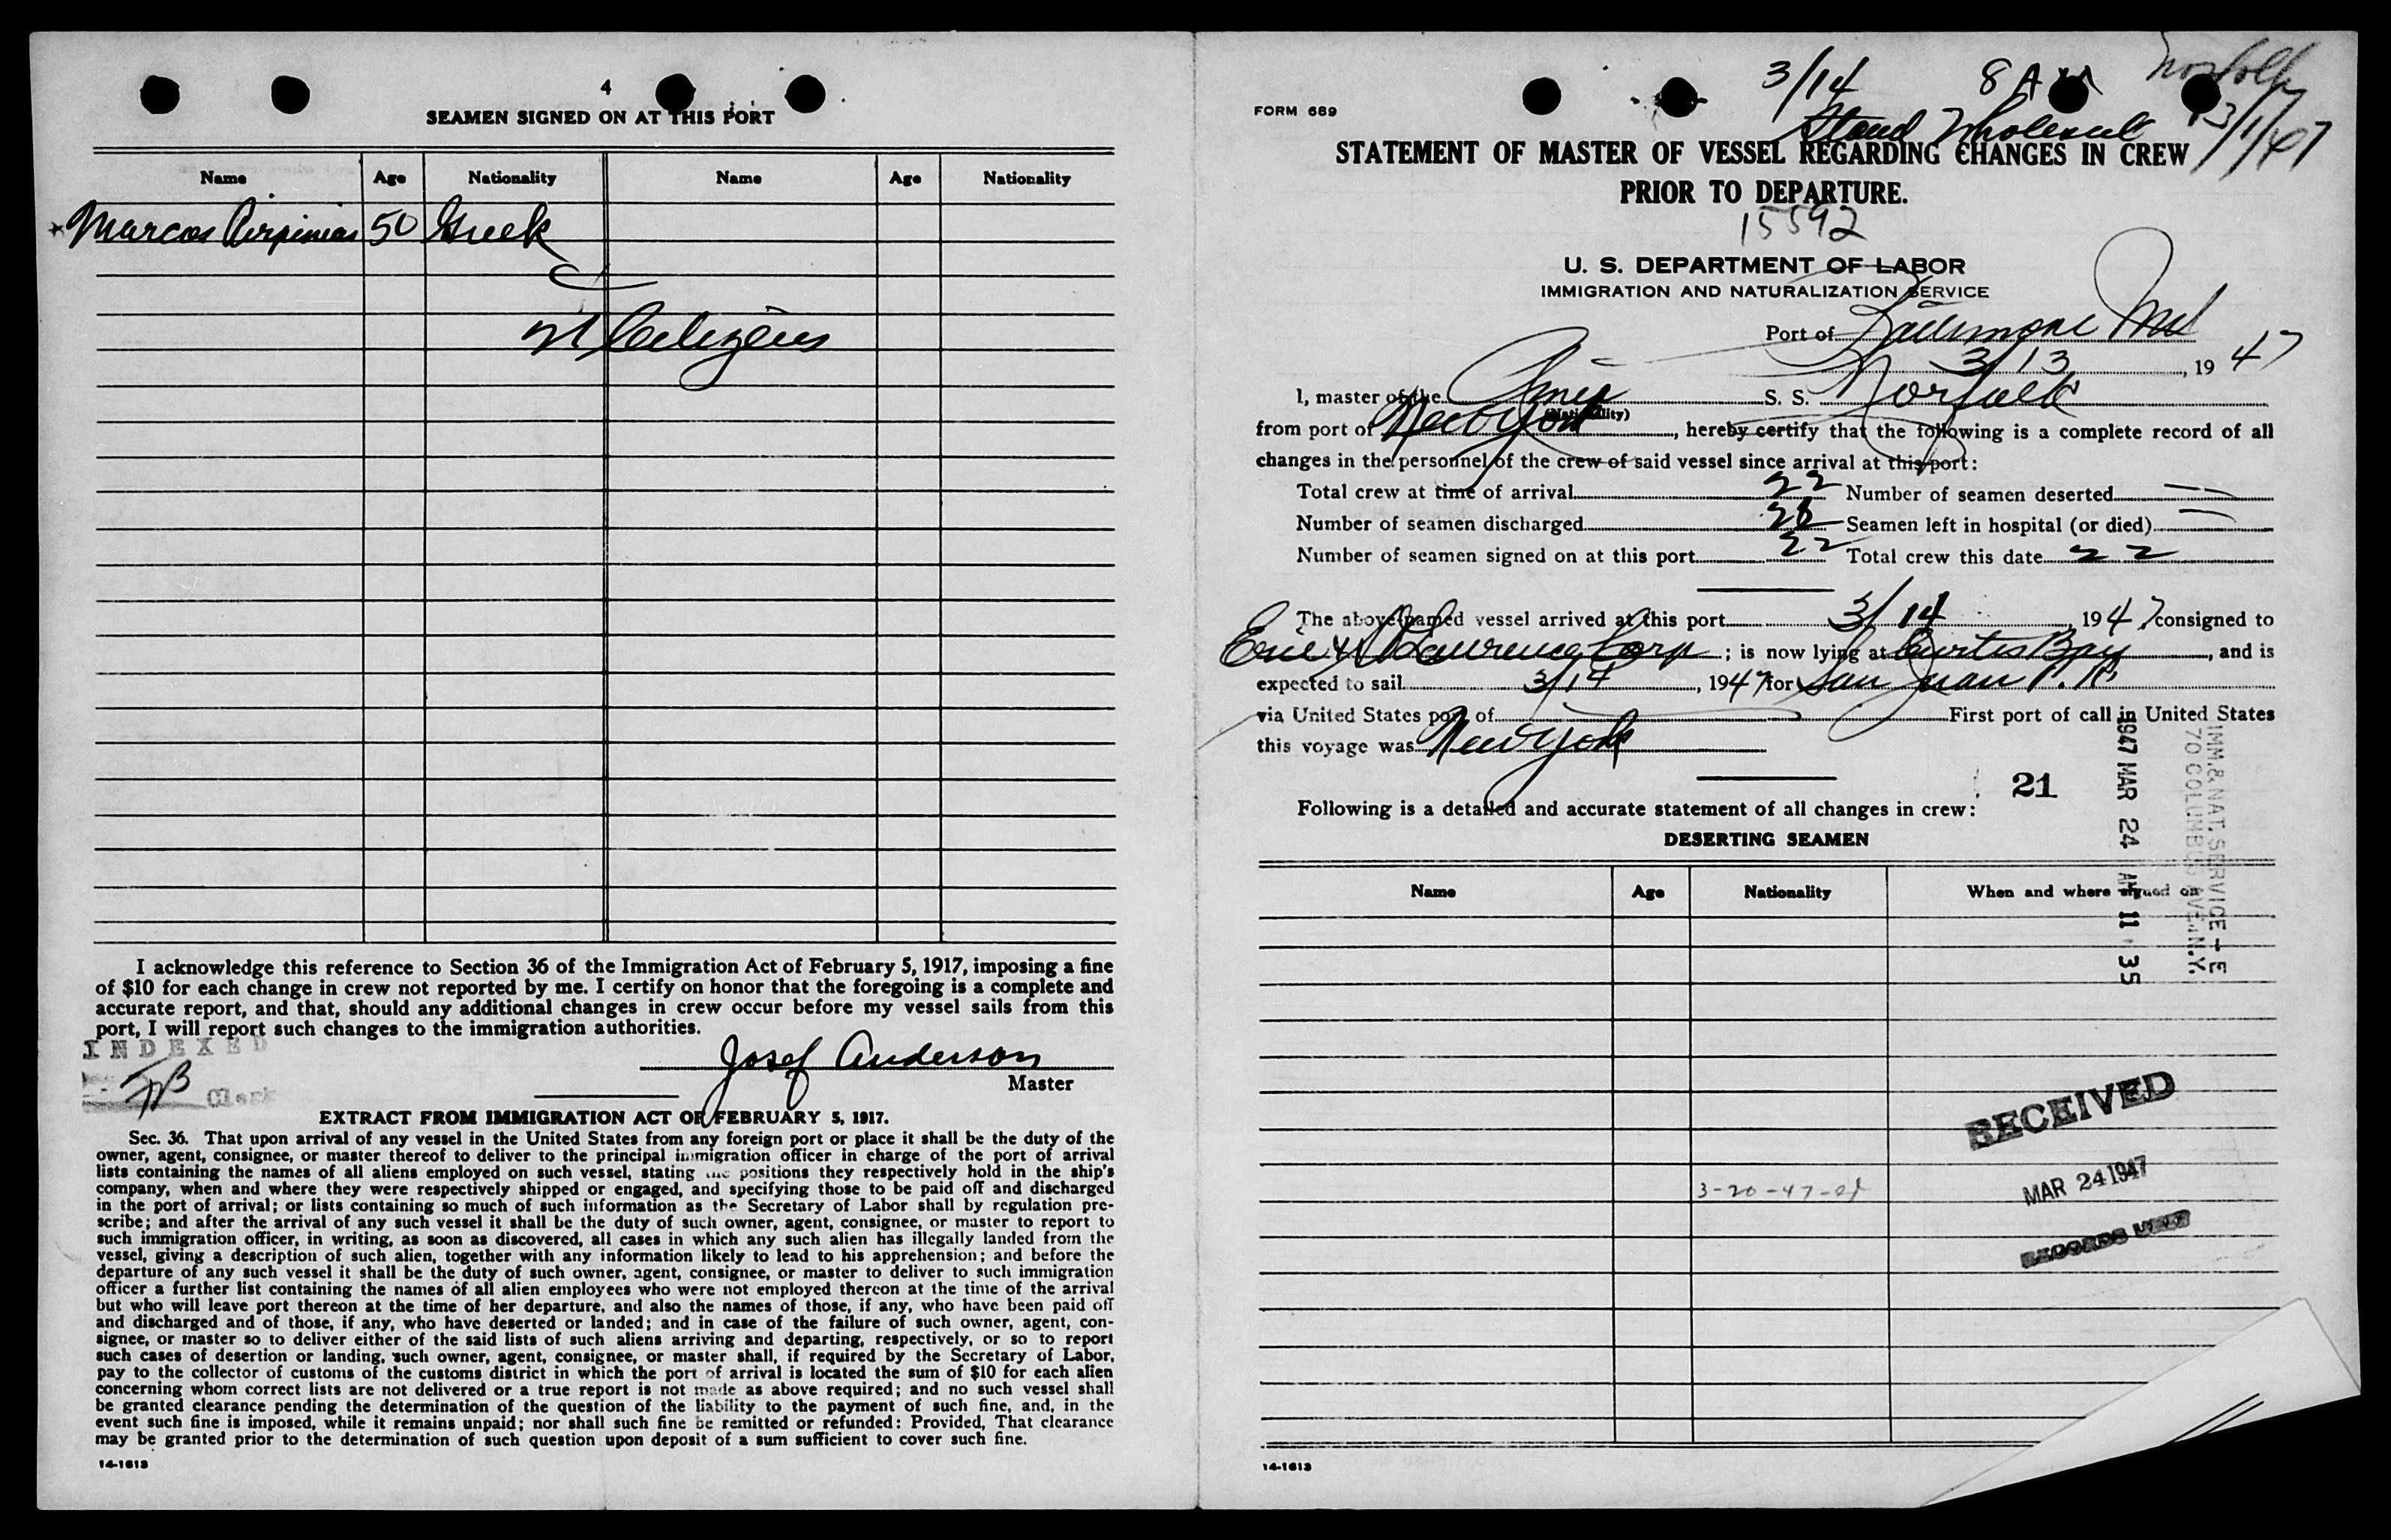 4
SEAMEN SIGNED ON AT THIS PORT
Name Age Nationality Name Age Nationality
Marcos 50 Greek
21 Citizens
I acknowledge this reference to Section 36 of the Immigration Act of February 5, 1917, imposing a fine
of $10 for each change in crew not reported by me. I certify on honor that the foregoing is a complete and
accurate report, and that, should any additional changes in crew occur before my vessel sails from this
port, I will report such changes to the immigration authorities.
INDEXED
Josef Anderson
Master
Clerk
EXTRACT FROM IMMIGRATION ACT OF FEBRUARY 5, 1917.
Sec. 36. That upon arrival of any vessel in the United States from any foreign port or place it shall be the duty of the
owner, agent, consignee, or master thereof to deliver to the principal immigration officer in charge of the port of arrival
lists containing the names of all aliens employed on such vessel, stating the positions they respectively hold in the ship's
company, when and where they were respectively shipped or engaged, and specifying those to be paid off and discharged
in the port of arrival; or lists containing so much of such information as the Secretary of Labor shall by regulation pre-
scribe; and after the arrival of any such vessel it shall be the duty of such owner, agent, consignee, or master to report to
such immigration officer, in writing, as soon as discovered, all cases in which any such alien has illegally landed from the
vessel, giving a description of such alien, together with any information likely to lead to his apprehension; and before the
departure of any such vessel it shall be the duty of such owner, agent, consignee, or master to deliver to such immigration
officer a further list containing the names of all alien employees who were not employed thereon at the time of the arrival
but who will leave port thereon at the time of her departure, and also the names of those, if any, who have been paid off
and discharged and of those, if any, who have deserted or landed; and in case of the failure of such owner, agent, con-
signee, or master so to deliver either of the said lists of such aliens arriving and departing, respectively, or so to report
such cases of desertion or landing, such owner, agent, consignee, or master shall, if required by the Secretary of Labor,
pay to the collector of customs of the customs district in which the port of arrival is located the sum of $10 for each alien
concerning whom correct lists are not delivered or a true report is not made as above required; and no such vessel shall
be granted clearance pending the determination of the question of the liability to the payment of such fine, and, in the
event such fine is imposed, while it remains unpaid; nor shall such fine be remitted or refunded: Provided, That clearance
may be granted prior to the determination of such question upon deposit of a sum sufficient to cover such fine.
14-1613
3/14 8 AM Norfolk
FORM 689
STATEMENT OF MASTER OF VESSEL REGARDING CHANGES IN CREW
PRIOR TO DEPARTURE.
15592
U. S. DEPARTMENT OF LABOR
IMMIGRATION AND NATURALIZATION SERVICE
Port of Baltimore Md
3/13, 1947
I, master of the Amer S. S. Norfolk
(Nationality)
from port of New York, hereby certify that the following is a complete record of all
changes in the personnel of the crew of said vessel since arrival at this port:
Total crew at time of arrival 22 Number of seamen deserted —
Number of seamen discharged Seamen left in hospital (or died) —
Number of seamen signed on at this port 22 Total crew this date 22
The above-named vessel arrived at this port 3/14, 1947, consigned to
Erie & St Lawrence Corp; is now lying at Curtis Bay, and is
expected to sail 3/14, 1947 for San Juan P. R.
via United States port of First port of call in United States
this voyage was New York
21
Following is a detailed and accurate statement of all changes in crew:
DESERTING SEAMEN
Name Age Nationality When and where signed on
IMM. & NAT. SERVICE - E
70 COLUMBUS AVE. N.Y.
1947 MAR 24 AM 11 35
RECEIVED
MAR 24 1947
RECORDS UNIT
3-20-47
14-1613